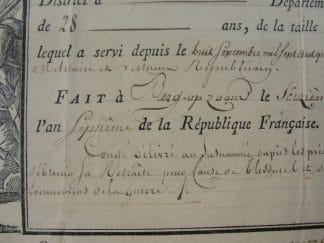 District
Départeme
de 28 ans, de la taille
lequel a servi depuis le huit Septembre mil Sept cent q
Militaire et Vertueux Républicain.
FAIT à Berg-op-zoom le Seizièm
l'an Septième de la République Française.
Congé délivré au Susnommé d'après les piè
d'obtenir sa Retraite pour Cause de blessures et
de la Guerre